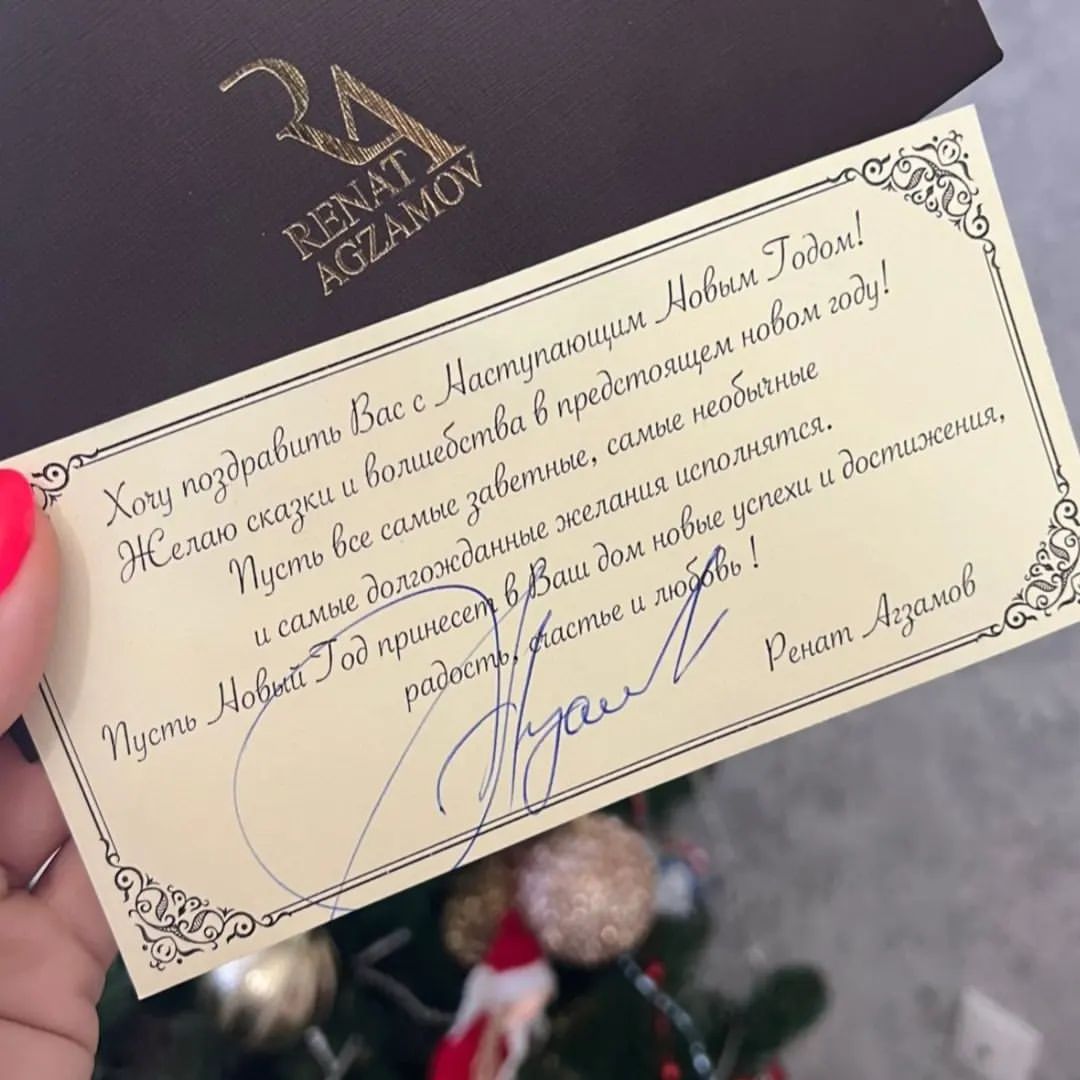 RA
RENAT
AGZAMOV
Хочу поздравить Вас с Наступающим Новым Годом!
Желаю сказки и волшебства в предстоящем новом году!
Пусть все самые заветные, самые необычные
и самые долгожданные желания исполнятся.
Пусть Новый Год принесет в Ваш дом новые успехи и достижения,
радость, счастье и любовь !
Ренат Агзамов